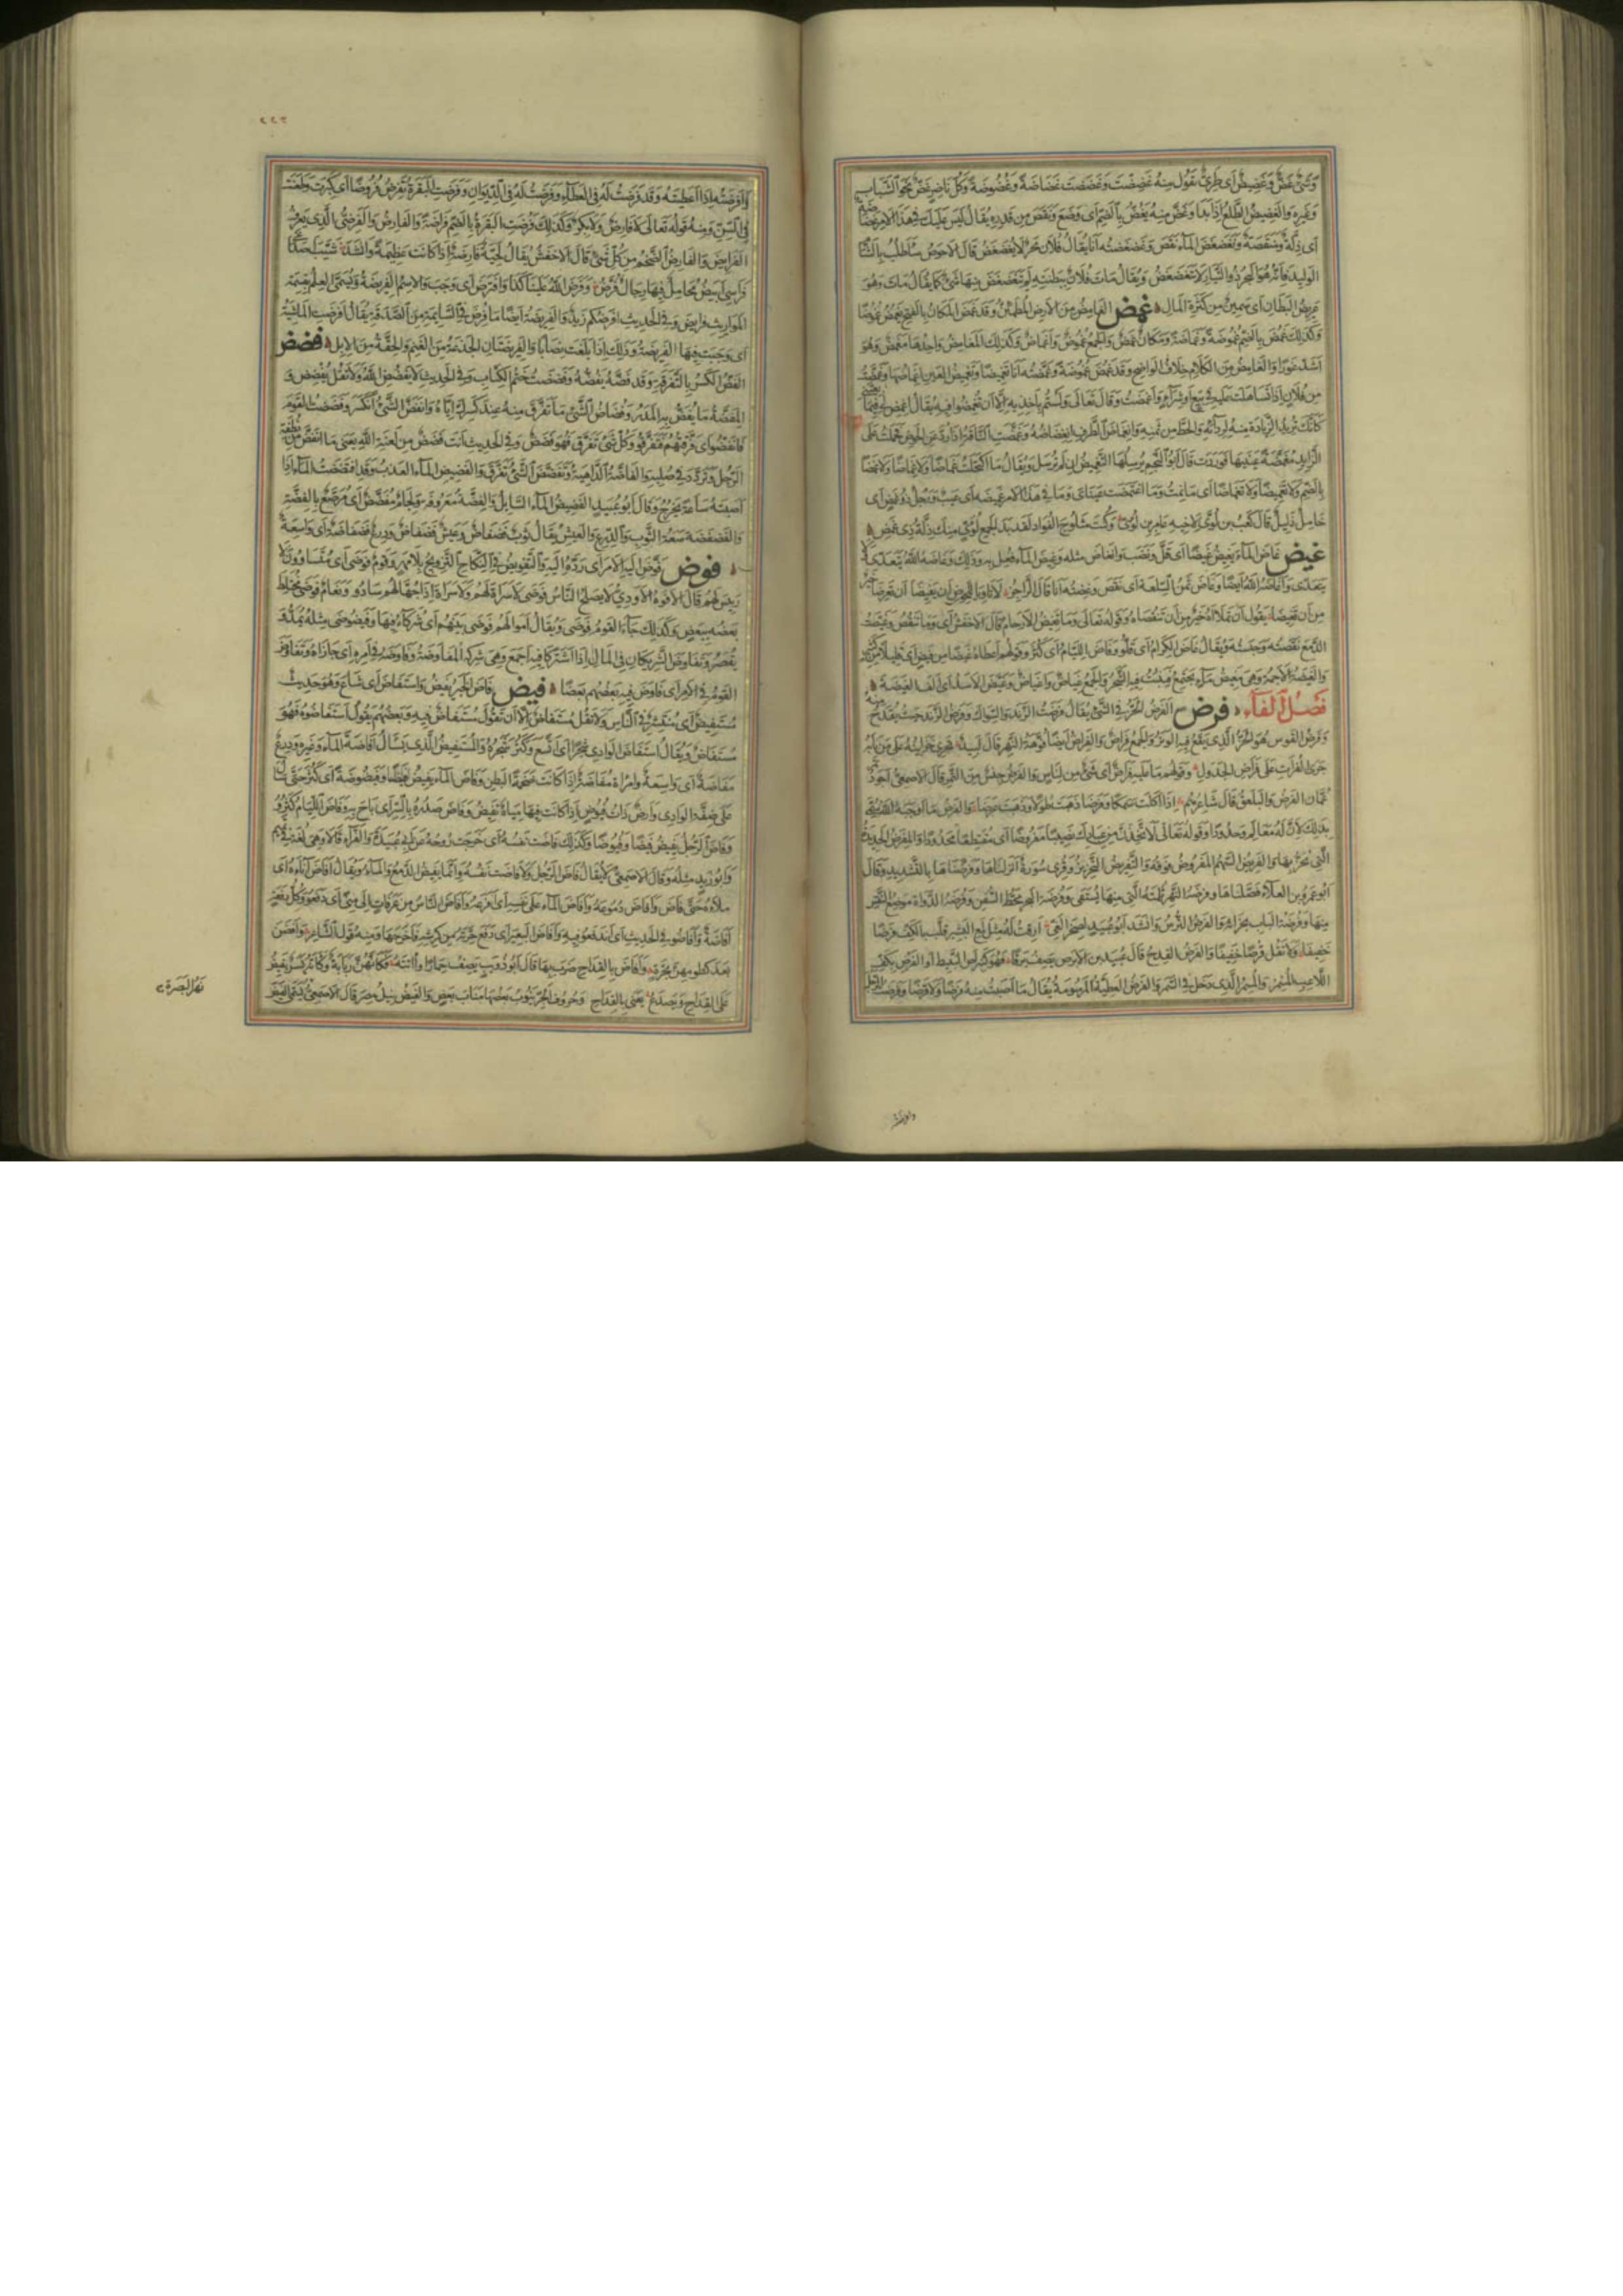 وشئ غض وغضيض اى طرى تقول منه غضضت وغضضت غضاضة وغضوضة وكل ناضر غض نحو الشباب
وغيره والغضيض الطلع اذا بدا وغض منه يغض بالضم اى وضع ونقص من قدره يقال ليس عليك فى هذا الامر غضاضة
اى ذلة ومنقصة وتغضغض الماء نقص وغضغضته انا يقال فلان بحر لا يغضغض قال الاحوص ساطلب بالشام
الوليد فانه هو البحر ذو التيار لا يتغضغض ويقال مات فلان ببطنته لم يتغضغض منها شئ كما يقال مات وهو
عريض البطان اى سمين من كثرة المال غمض الغامض من الارض المطمئن وقد غمض المكان بالفتح يغمض غموضا
وكذلك غمض بالضم غموضة وغماضة ومكان غمض والجمع غموض واغماض وكذلك المغامض واحدها مغمض وهو
اشد غورا والغامض من الكلام خلاف الواضح وقد غمض غموضة وغمضته انا تغميضا وتغميض العين اغماضها وغمضت
من فلان اذا تساهلت عليه فى بيع او شراء واغمضت وقال تعالى ولستم باخذيه الا ان تغمضوا فيه يقال اغمض لى فيما بعتنى
كانك تريد الزيادة منه لرداته والحط من ثمنه وانغماض الطرف انغضاضه وغمضت الناقة اذا ردت عن الحوض فحملت على
الذايد مغمضة عينيها فوردت قال ابو النجم يرسلها التغميض ان لم ترسل ويقال ما اكتحلت غماضا ولا غماضا ولا غمضا
بالضم ولا تغميضا ولا تغماضا اى ما نمت وما اغتمضت عيناى وما فى هذا الامر غميضة اى عيب ورجل ذو غمض اى
خامل ذليل قال كعب بن لؤى لاخيه عامر بن لؤى وكنت مثلوج الفؤاد لقد بدا لجمع لؤى منك ذلة ذى غمض
غيض غاض الماء يغيض غيضا اى قل ونضب وانغاض مثله وغيض الماء فعل به ذلك وغاضه الله يتعدى ولا
يتعدى واغاضه الله ايضا وغاض ثمن السلعة اى نقص وغضته انا قال الراجز لا تاويا للحوض ان يغيضا ان تغرضا خير
من ان تغيضا يقول ان تملاه خير من ان تنقصاه وقوله تعالى وما تغيض الارحام قال الاخفش اى وما تنقص وغيضت
الدمع نقصته وحبسته ويقال غاض الكرام اى قلوا وفاض اللئام اى كثروا وقولهم اعطاه غيضا من فيض اى قليلا من كثير
والغيضة الاجمة وهى مغيض ماء يجتمع فينبت فيه الشجر والجمع غياض واغياض وغيض الاسد اى الف الغيضة
فصل الفاء فرض الفرض الحز فى الشئ يقال فرضت الزند والسواك وفرض الزند حيث يقدح منه
وفرض القوس هو الحز الذى يقع فيه الوتر والجمع فراض والفراض ايضا فوهة النهر قال لبيد تجرى خزاينه على من نابه
جرى الفرات على فراض الجدول وقولهم ما عليه فراض اى شئ من لباس والفرض جنس من التمر قال الاصمعى اجود تمر
عمان الفرض والبلعق قال شاعرهم اذا اكلت سمكا وفرضا ذهبت طولا وذهبت عرضا والفرض ما اوجبه الله سمى
بذلك لان له معالم وحدودا وقوله تعالى لاتخذن من عبادك نصيبا مفروضا اى مقتطعا محدودا والمفرض الحديدة
التى يحز بها والفريض السهم المفروض فوقه والتفريض التحزيز وقرئ سورة انزلناها وفرضناها بالتشديد وقال
ابو عمرو بن العلاء فصلناها وفرضة النهر ثلمته التى منها يستقى وفرضة البحر محط السفن وفرضة الدواة موضع النقس
منها وفرضة الباب نجرانه والفرض الترس وانشد ابو عبيد لصخر الغى ارقت له مثل لمع البشير قلب بالكف فرضا
خفيفا ولا تقل قرصا خفيفا والفرض القدح قال عبيد بن الابرص يصف برقا فهو كنبراس النبيط او الفرض بكف
اللاعب المسمر والمسمر الذى دخل فى السمر والفرض العطية المرسومة يقال ما اصبت منه فرضا ولا قرضا وفرضت الرجل
٢٢٣
وافرضته اذا اعطيته وقد فرضت له فى العطاء وفرضت له فى الديوان وفرضت البقرة تفرض فروضا اى كبرت وطعنت
فى السن ومنه قوله تعالى لا فارض ولا بكر وكذلك فرضت البقرة بالضم فراضة والفارض والفرضى الذى يعرف
الفرايض والفارض الضخم من كل شئ قال الاخفش يقال لحية فارضة اذا كانت عظيمة وانشد شيب اصداغى
فراسى ابيض محامل فيها رجال فرض وفرض الله علينا كذا وافترض اى وجب والاسم الفريضة ويسمى العلم بقسمة
المواريث فرايض وفى الحديث افرضكم زيد والفريضة ايضا ما فرض فى السايمة من الصدقة يقال افرضت الماشية
اى وجبت فيها الفريضة وذلك اذا بلغت نصابا والفريضتان الجذعة من الغنم والحقة من الابل فضض
الفض الكسر بالتفرقة وقد فضه يفضه وفضضت ختم الكتاب وفى الحديث لا يفضض الله فاك ولا تقل يفضض و
المفضة ما يفض به المدر وفضاض الشئ ما تفرق منه عند كسرك اياه وانفض الشئ انكسر وفضضت القوم
فانفضوا اى فرقتهم فتفرقوا وكل شئ تفرق فهو فضض وفى الحديث انت فضض من لعنة الله يعنى ما انفض من نطفة
الرجل وتردد فى صلبه والفاضة الداهية وتفضض الشئ تفرق والفضيض الماء العذب وقد افتضضت الماء اذا
اصبته ساعة يخرج وقال ابو عبيد الفضيض الماء السايل والفضة معروفة ولجام مفضض اى مرصع بالفضة
والفضفضة سعة الثوب والدرع والعيش يقال ثوب فضفاض وعيش فضفاض ودرع فضفاضة اى واسعة
فوض فوض اليه الامر اى رده اليه والتفويض فى النكاح التزويج بلا مهر وقوم فوضى اى متساوون لا
رئيس لهم قال الافوه الاودى لا يصلح الناس فوضى لا سراة لهم ولا سراة اذا جهالهم سادوا ونعام فوضى مختلط
بعضه ببعض وكذلك جاء القوم فوضى ويقال اموالهم فوضى بينهم اى شركاء فيها وفيضوضى مثله يمد و
يقصر وتفاوض الشريكان فى المال اذا اشتركا فيه اجمع وهى شركة المفاوضة وفاوضه فى امره اى جاراه وتفاوض
القوم فى الامر اى فاوض فيه بعضهم بعضا فيض فاض الخبر يفيض واستفاض اى شاع وهو حديث
مستفيض اى منتشر فى الناس ولا تقل مستفاض الا ان تقول مستفاض فيه وبعضهم يقول استفاضوه فهو
مستفاض ويقال استفاض الوادى شجرا اى اتسع وكثر شجره والمستفيض الذى يسال افاضة الماء وغيره ودرع
مفاضة اى واسعة وامراة مفاضة اذا كانت ضخمة البطن وفاض الماء يفيض فيضا وفيضوضة اى كثر حتى سال
على ضفة الوادى وارض ذات فيوض اذا كانت فيها مياه تفيض وفاض صدره بالسر اى باح به وفاض اللئام كثروا
وفاض الرجل يفيض فيضا وفيوضا وكذلك فاضت نفسه اى خرجت روحه عن ابى عبيدة والفراء قالا وهى لغة فى تميم
وابو زيد مثله وقال الاصمعى لا يقال فاض الرجل ولا فاضت نفسه وانما يفيض الدمع والماء ويقال افاض اناءه اى
ملاه حتى فاض وافاض دموعه وافاض الماء على نفسه اى افرغه وافاض الناس من عرفات الى منى اى دفعوا وكل دفعة
افاضة وافاضوا فى الحديث اى اندفعوا فيه وافاض البعير اى دفع جرته من كرشه فاخرجها ومنه قول الشاعر وافضن
بعد كظومهن بجرة وافاض بالقداح ضرب بها قال ابو ذويب يصف حمارا واتنه وكانهن ربابة وكانه يسر يفيض
على القداح ويصدع يعنى بالقداح وحروف الجر ينوب بعضها مناب بعض والفيض نيل مصر قال الاصمعى يسمى الفيض
نهر البصرة
وافرضته